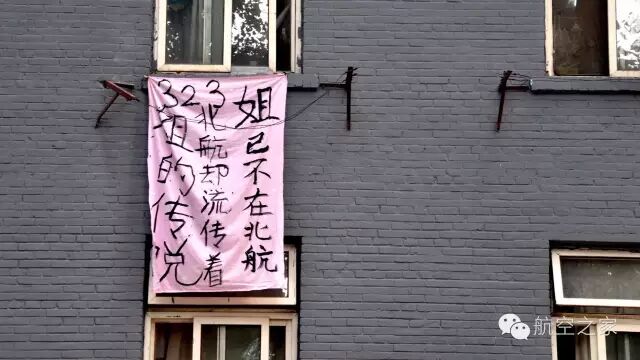 姐已不在北航
北航却流传着
姐的传说
323
航空之家